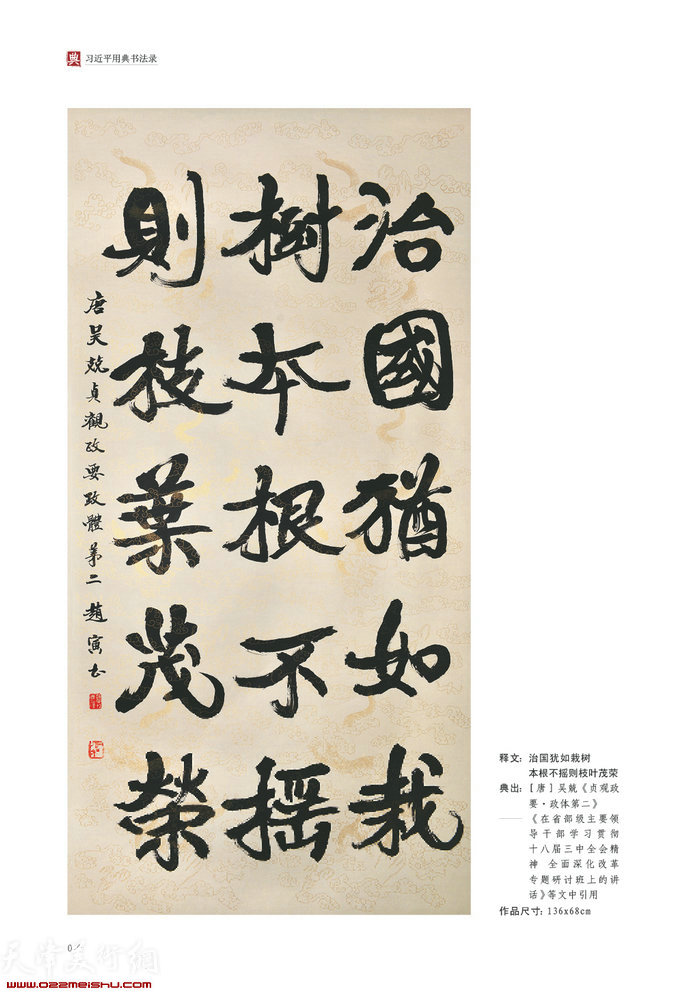 典
习近平用典书法录
治國猶如栽
樹本根不摇
則枝葉茂榮
唐吴兢貞觀政要政體第二 趙寅书
释文：治国犹如栽树
本根不摇则枝叶茂荣
典出：［唐］吴兢《贞观政
要·政体第二》
《在省部级主要领
导干部学习贯彻
十八届三中全会精
神 全面深化改革
专题研讨班上的讲
话》等文中引用
作品尺寸：136x68cm
天津美术网
www.022meishu.com